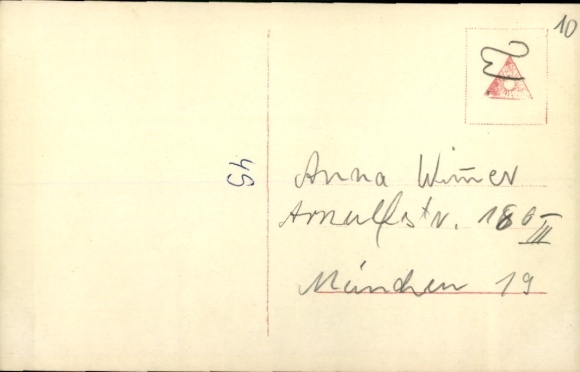 10
45
Anna Wim̅er
Arnulfstr. 180 III
München 19